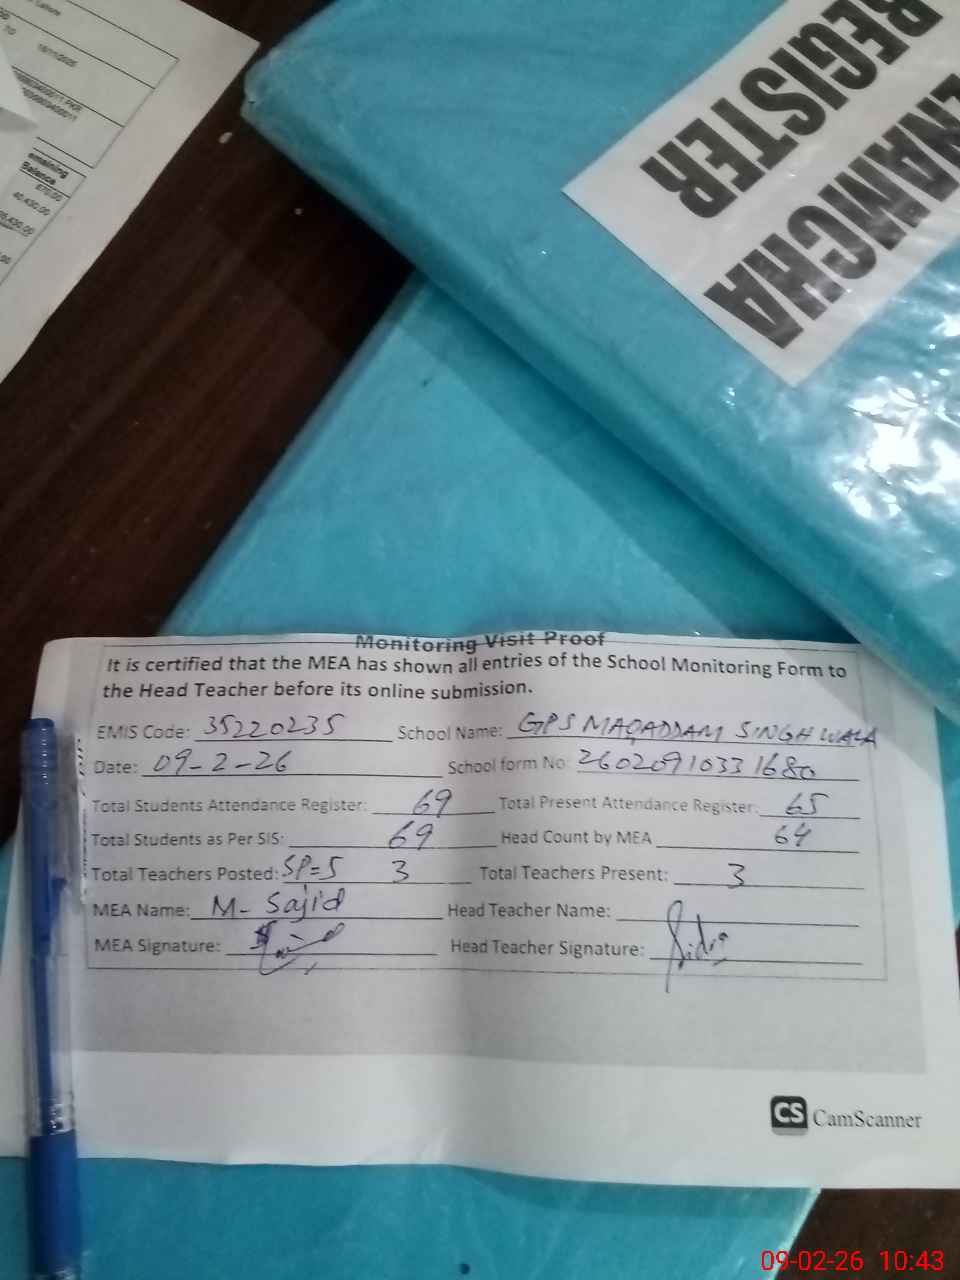 Lahore
18/11/2025
Remaining
Balance
670.00
40,430.00
ENAMCHA
REGISTER
Monitoring Visit Proof
It is certified that the MEA has shown all entries of the School Monitoring Form to
the Head Teacher before its online submission.
EMIS Code: 35220235 School Name: GPS MAQADDAM SINGH WALA
Date: 09-2-26 School form No: 26020910331680
Total Students Attendance Register: 69 Total Present Attendance Register: 65
Total Students as Per SIS: 69 Head Count by MEA 64
Total Teachers Posted: SP=5 3 Total Teachers Present: 3
MEA Name: M- Sajid Head Teacher Name:
MEA Signature: Head Teacher Signature:
CS CamScanner
09-02-26 10:43